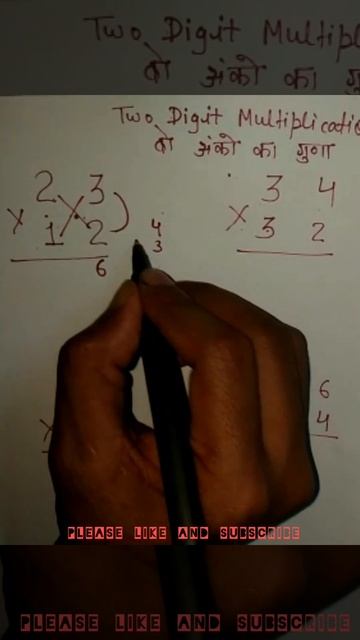 Two Digit Multipl
दो अंको का गु
Two Digit Multiplicatio
दो अंको का गुणा
2 3
× 1 2
6
4
3
3 4
× 3 2
6
4
×
PLEASE LIKE AND SUBSCRIBE
PLEASE LIKE AND SUBSCRIBE